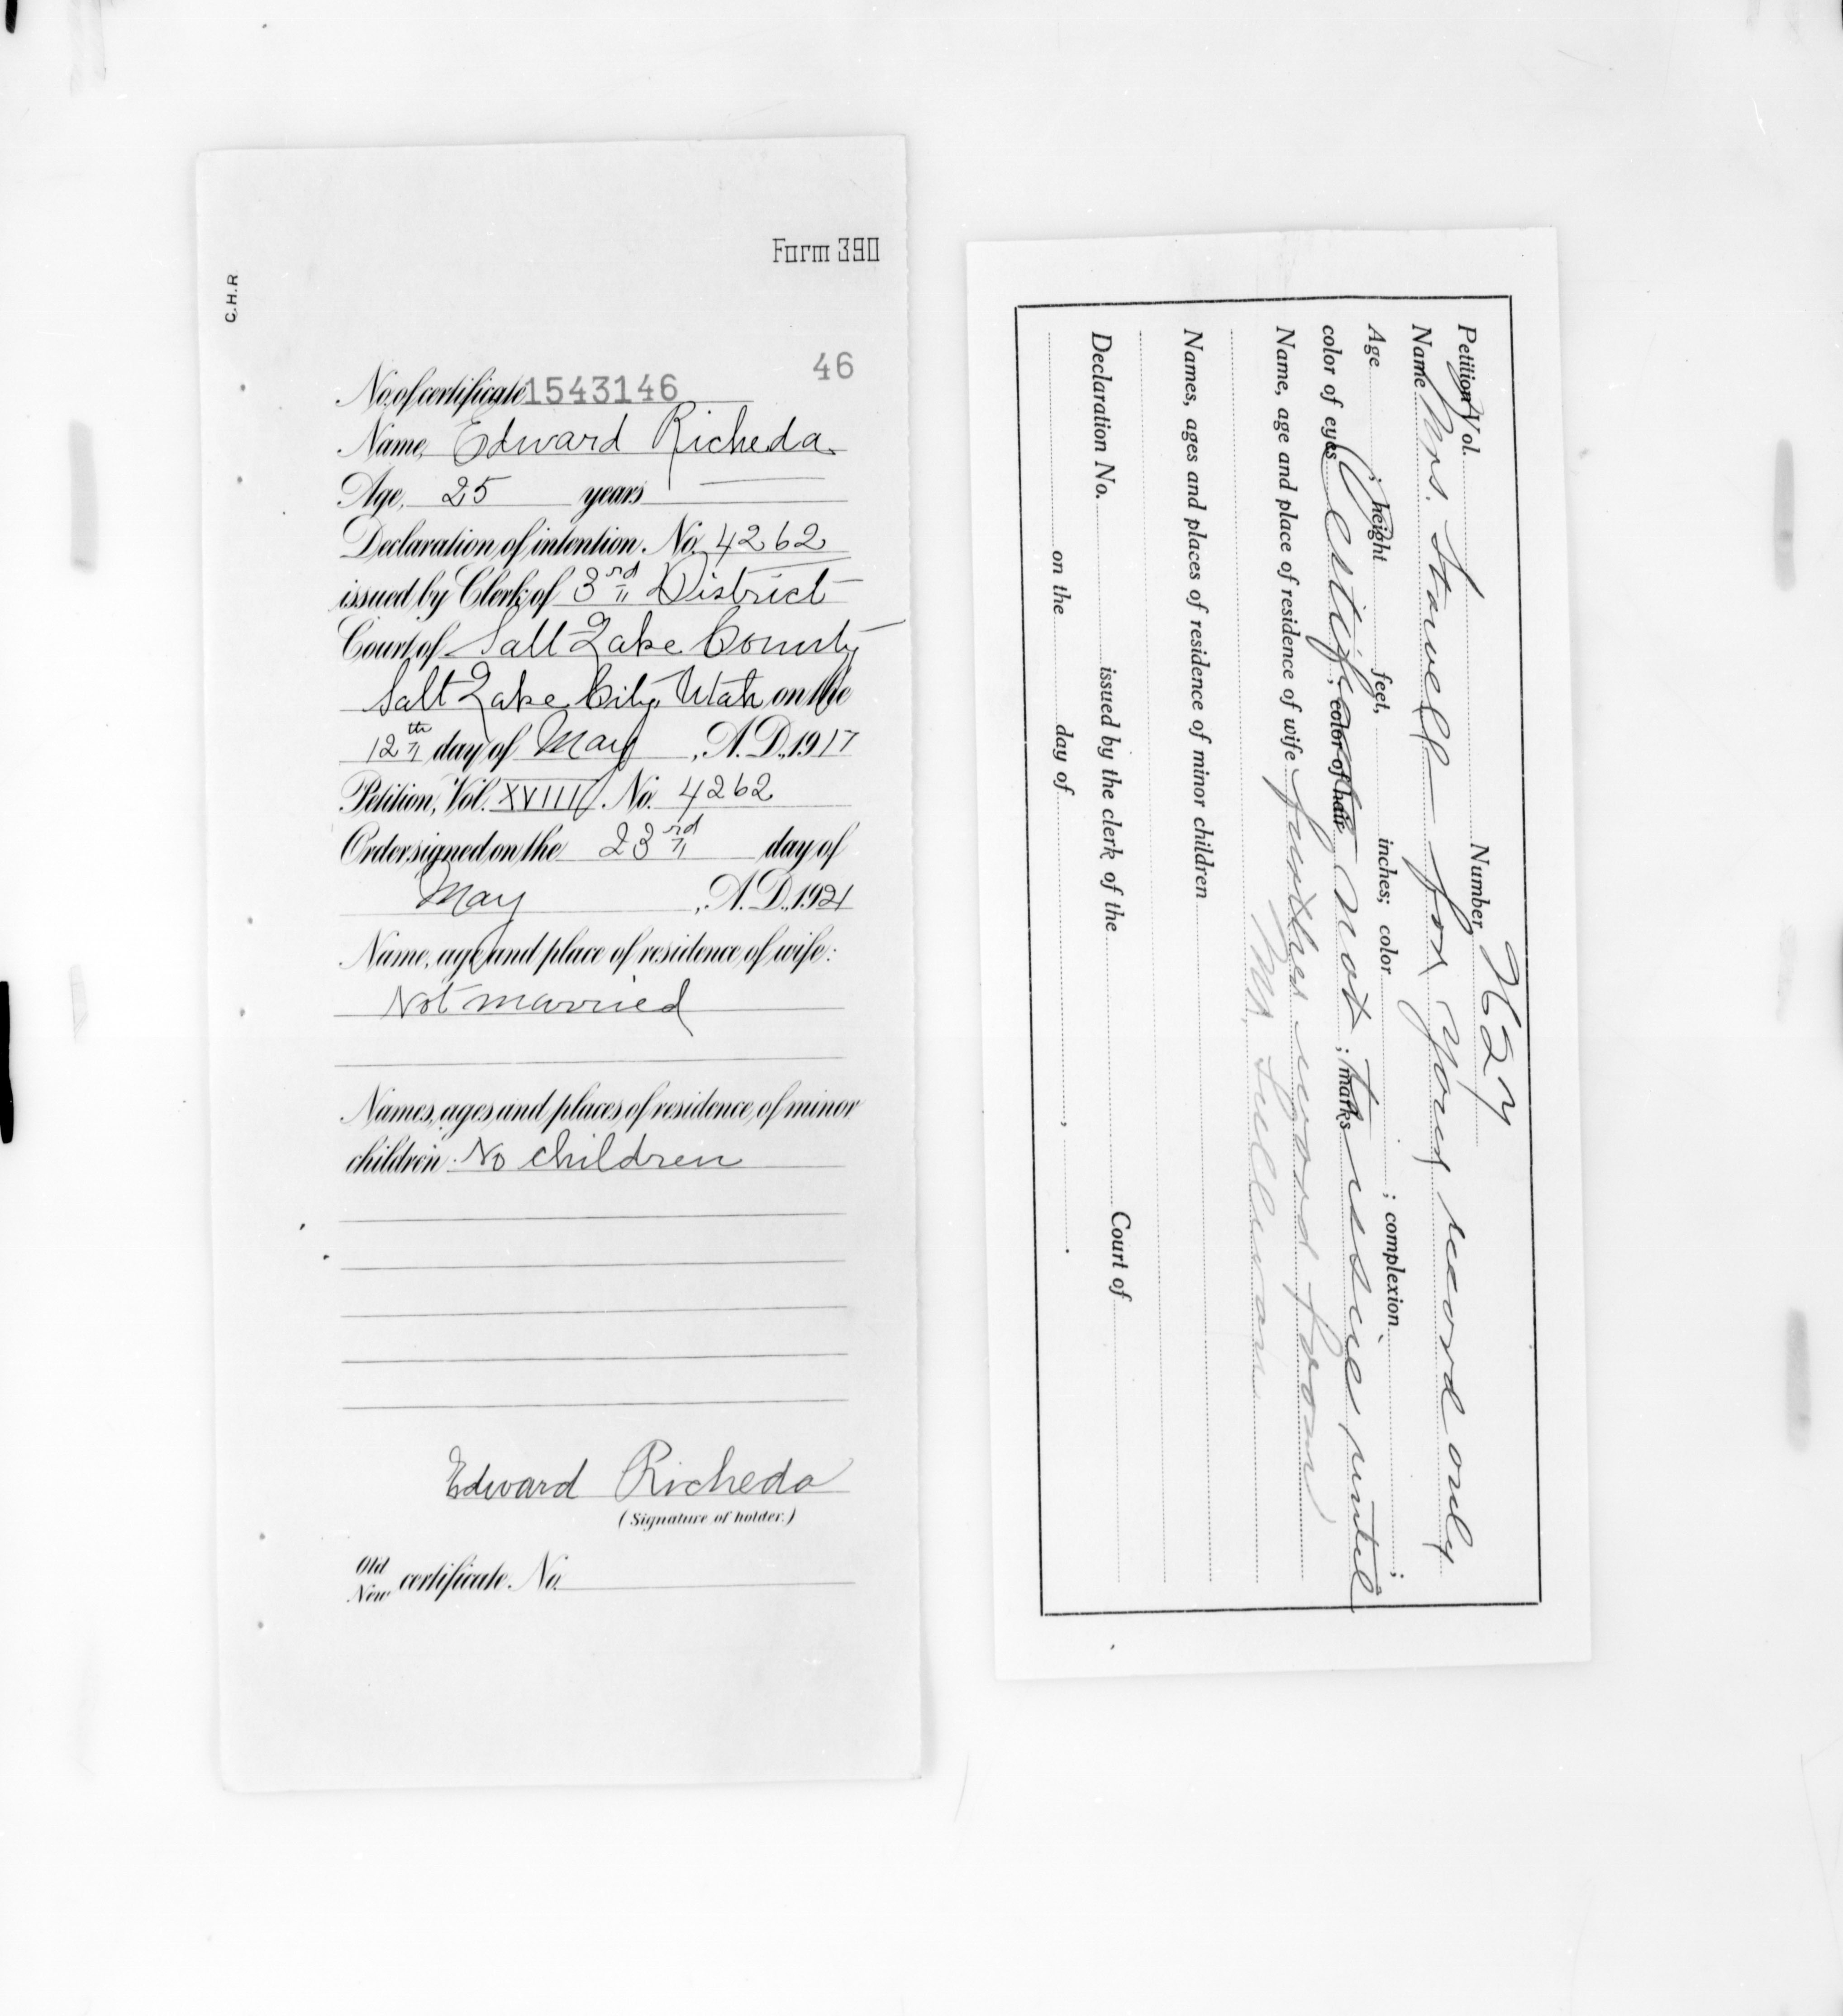 Form 390
C.H.R
46
No. of certificate 1543146
Name, Edward Richeda
Age, 25 years
Declaration of intention. No. 4262
issued by Clerk of 3rd District
Court of Salt Lake County
Salt Lake City, Utah on the
12th day of May, A.D., 1917
Petition, Vol. XVIII. No. 4262
Order signed on the 23rd day of
May, A.D., 1921
Name, age and place of residence of wife:
Not married
Names, ages and places of residence of minor
children. No children
Edward Richeda
(Signature of holder.)
Old
New certificate No.
Petition Vol. Number
Name Mrs. for your record only
Age ; height feet, inches; color ; complexion ;
color of eyes ; color of hair ; marks
Certificate not to issue until
Name, age and place of residence of wife
further word from
Mr. Sullivan
Names, ages and places of residence of minor children
Declaration No. issued by the clerk of the Court of
on the day of , .